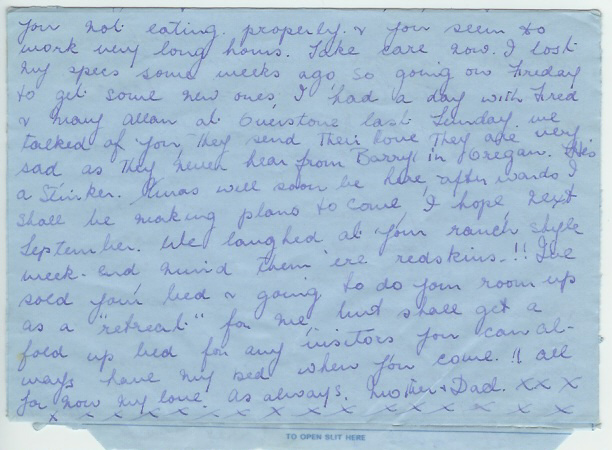 you not eating properly. & you seem to
work very long hours. Take care now. I lost
my specs some weeks ago, so going on Friday
to get some new ones, I had a day with Fred
& Mary Allan at Overstone last Sunday we
talked of you They send Their love They are very
sad as They never hear from Barry, in Oregan. He's
a Stinker. Xmas will soon be here, after wards I
shall be making plans to come, I hope next
September. We laughed at your ranch style
week-end mind them 'ere redskins.!! I've
sold your bed & going to do your room up
as a "retreat" for me but shall get a
fold up bed for any visitors you can al-
ways have my bed when you come.!! all
for now my love. As always. Mother & Dad. XX X
X X X X X X X X X X X X X X X
TO OPEN SLIT HERE